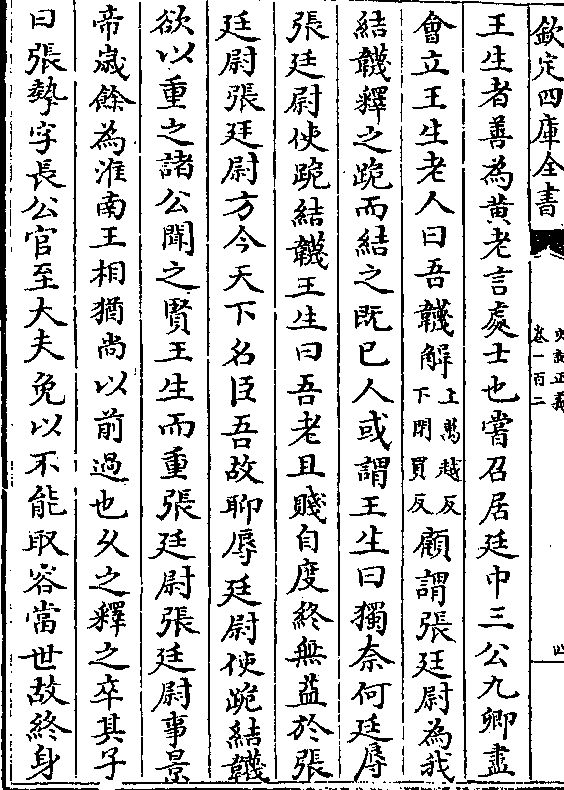 欽定四庫全書
史記正義
卷一百二
四
王生者善為黄老言處士也嘗召居廷中三公九卿盡
會立王生老人曰吾韈解上萬越反下閑買反顧謂張廷尉為我
結韈釋之跪而結之既已人或謂王生曰獨奈何廷辱
張廷尉使跪結韈王生曰吾老且賤自度終無益於張
廷尉張廷尉方今天下名臣吾故聊辱廷尉使跪結韈
欲以重之諸公聞之賢王生而重張廷尉張廷尉事景
帝歲餘為淮南王相猶尚以前過也乆之釋之卒其子
曰張勢字長公官至大夫免以不能取容當世故終身